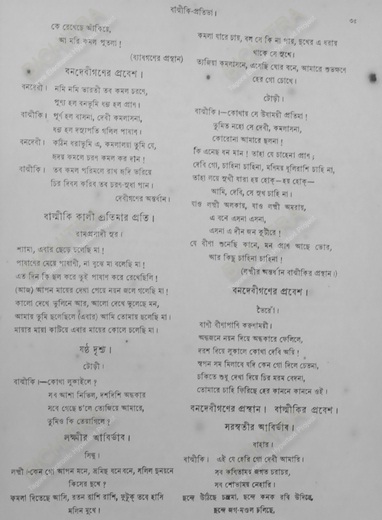 বাল্মীকি-প্রতিভা।
৩৫
কে রেখেছে আঁকিয়ে,
আ মরি কমল পুতলা!
(ব্যাধগণের প্রস্থান)
বনদেবীগণের প্রবেশ।
বনদেবী। নমি নমি ভারতী তব কমল চরণে,
পুণ্য হল বনভূমি ধন্য হল প্রাণ।
বাল্মীকি। পূর্ণ হল বাসনা, দেবী কমলাসনা,
ধন্য হল দস্যুপতি গলিল পাষাণ।
বনদেবী। কঠিন ধরাভূমি এ, কমলালয়া তুমি যে,
হৃদয় কমলে চরণ কমল কর দান!
বাল্মীকি। তব কমল পরিমলে রাখ হৃদি ভরিয়ে
চির দিবস করিব তব চরণ-সুধা পান।
দেবীগণের অন্তর্ধান।
বাল্মীকি কালী প্রতিমার প্রতি।
রামপ্রসাদী সুর।
শ্যামা, এবার ছেড়ে চলেছি মা!
পাষাণের মেয়ে পাষাণী, না বুঝে মা বলেছি মা!
এত দিন কি ছল করে তুই পাষাণ করে রেখেছিলি!
(আজ) আপন মায়ের দেখা পেয়ে নয়ন জলে গলেছি মা!
কালো দেখে ভুলিনে আর, আলো দেখে ভুলেছে মন,
আমায় তুমি ছলেছিলে (এবার) আমি তোমায় ছলেছি মা!
মায়ার মায়া কাটিয়ে এবার মায়ের কোলে চলেছি মা!
ষষ্ঠ দৃশ্য।
টোড়ী।
বাল্মীকি।—কোথা লুকাইলে?
সব আশা নিভিল, দশদিশি অন্ধকার
সবে গেছে চ'লে তেজিয়ে আমারে,
তুমিও কি তেয়াগিলে?
লক্ষ্মীর আবির্ভাব।
সিন্ধু।
লক্ষ্মী।—কেন গো আপন মনে, ভ্রমিছ বনে বনে, সলিল দুনয়নে
কিসের দুখে?
কমলা দিতেছে আসি, রতন রাশি রাশি, ফুটুক্ তবে হাসি
মলিন মুখে!
কমলা যারে চায়, বল সে কি না পায়, দুখের এ ধরায়
থাকে সে সুখে।
ত্যজিয়া কমলাসনে, এসেছি ঘোর বনে, আমারে শুভক্ষণে
হের গো চোখে।
টোড়ী।
বাল্মীকি।—কোথায় সে উষাময়ী প্রতিমা!
তুমিত নহো সে দেবী, কমলাসনা,
কোরোনা আমারে ছলনা!
কি এনেছ ধন মান! তাহা যে চাহেনা প্রাণ।
দেবি গো, চাহিনা চাহিনা, মণিময় ধূলিরাশি চাহি না,
তাহা লয়ে সুখী যারা হয় হোক্—হয় হোক্—
আমি, দেবি, সে সুখ চাহি না।
যাও লক্ষ্মী অলকায়, যাও লক্ষ্মী অমরায়,
এ বনে এসনা এসনা,
এসনা এ দীন জন কুটীরে!
যে বীণা শুনেছি কানে, মন প্রাণ আছে ভোর,
আর কিছু চাহিনা চাহিনা!
(লক্ষ্মীর অন্তর্ধান বাল্মীকির প্রস্থান।)
বনদেবীগণের প্রবেশ।
ভৈরোঁ।
বাণী বীণাপাণি করুণাময়ী!
অন্ধজনে নয়ন দিয়ে অন্ধকারে ফেলিলে,
দরশ দিয়ে লুকালে কোথা দেবি অয়ি!
স্বপন সম মিলাবে যদি কেন গো দিলে চেতনা,
চকিতে শুধু দেখা দিয়ে চির মরম বেদনা,
তোমারে চাহি ফিরিছে হের কাননে কাননে ওই!
বনদেবীগণের প্রস্থান। বাল্মীকির প্রবেশ।
সরস্বতীর আবির্ভাব।
বাহার।
বাল্মীকি। এই যে হেরি গো দেবী আমারি।
সব কবিতাময় জগত চরাচর,
সব শোভাময় নেহারি।
ছন্দে উঠিছে চন্দ্রমা, ছন্দে কনক রবি উদিছে,
ছন্দে জগ-মণ্ডল চলিছে,